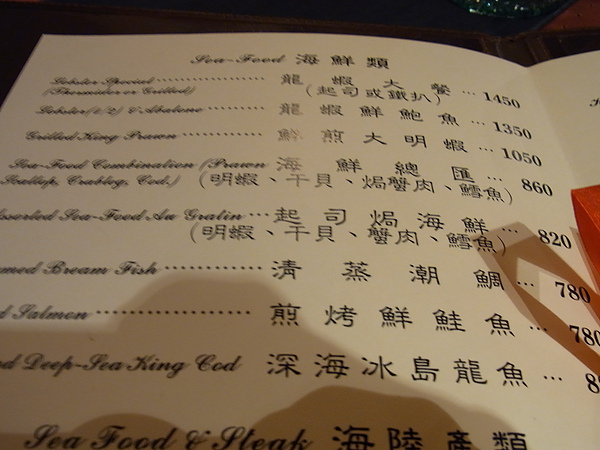 Sea-Food 海鮮類
Lobster Special 龍蝦大餐 1450
(Thermidor or Grilled) (起司或鐵扒)
Lobster(1/2) & Abalone 龍蝦鮮鮑魚 1350
Grilled King Prawn 鮮煎大明蝦 1050
Sea-Food Combination (Prawn 海鮮總匯 860
Scallop, Crableg, Cod.) (明蝦、干貝、焗蟹肉、鱈魚)
Assorted Sea-Food Au Gratin 起司焗海鮮 820
(明蝦、干貝、蟹肉、鱈魚)
Bream Fish 清蒸潮鯛 780
Salmon 煎烤鮮鮭魚 780
Deep-Sea King Cod 深海冰島龍魚
Sea Food & Steak 海陸產類